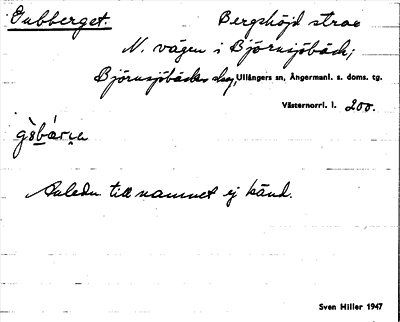 Gubberget. Bergshöjd strax
N. vägen i Björnsjöbäck;
Björnsjöbäcks by, Ullångers sn, Ångermanl. s. doms. tg.
Västernorrl. l. 200.
Anledn till namnet ej känd.
Sven Hiller 1947